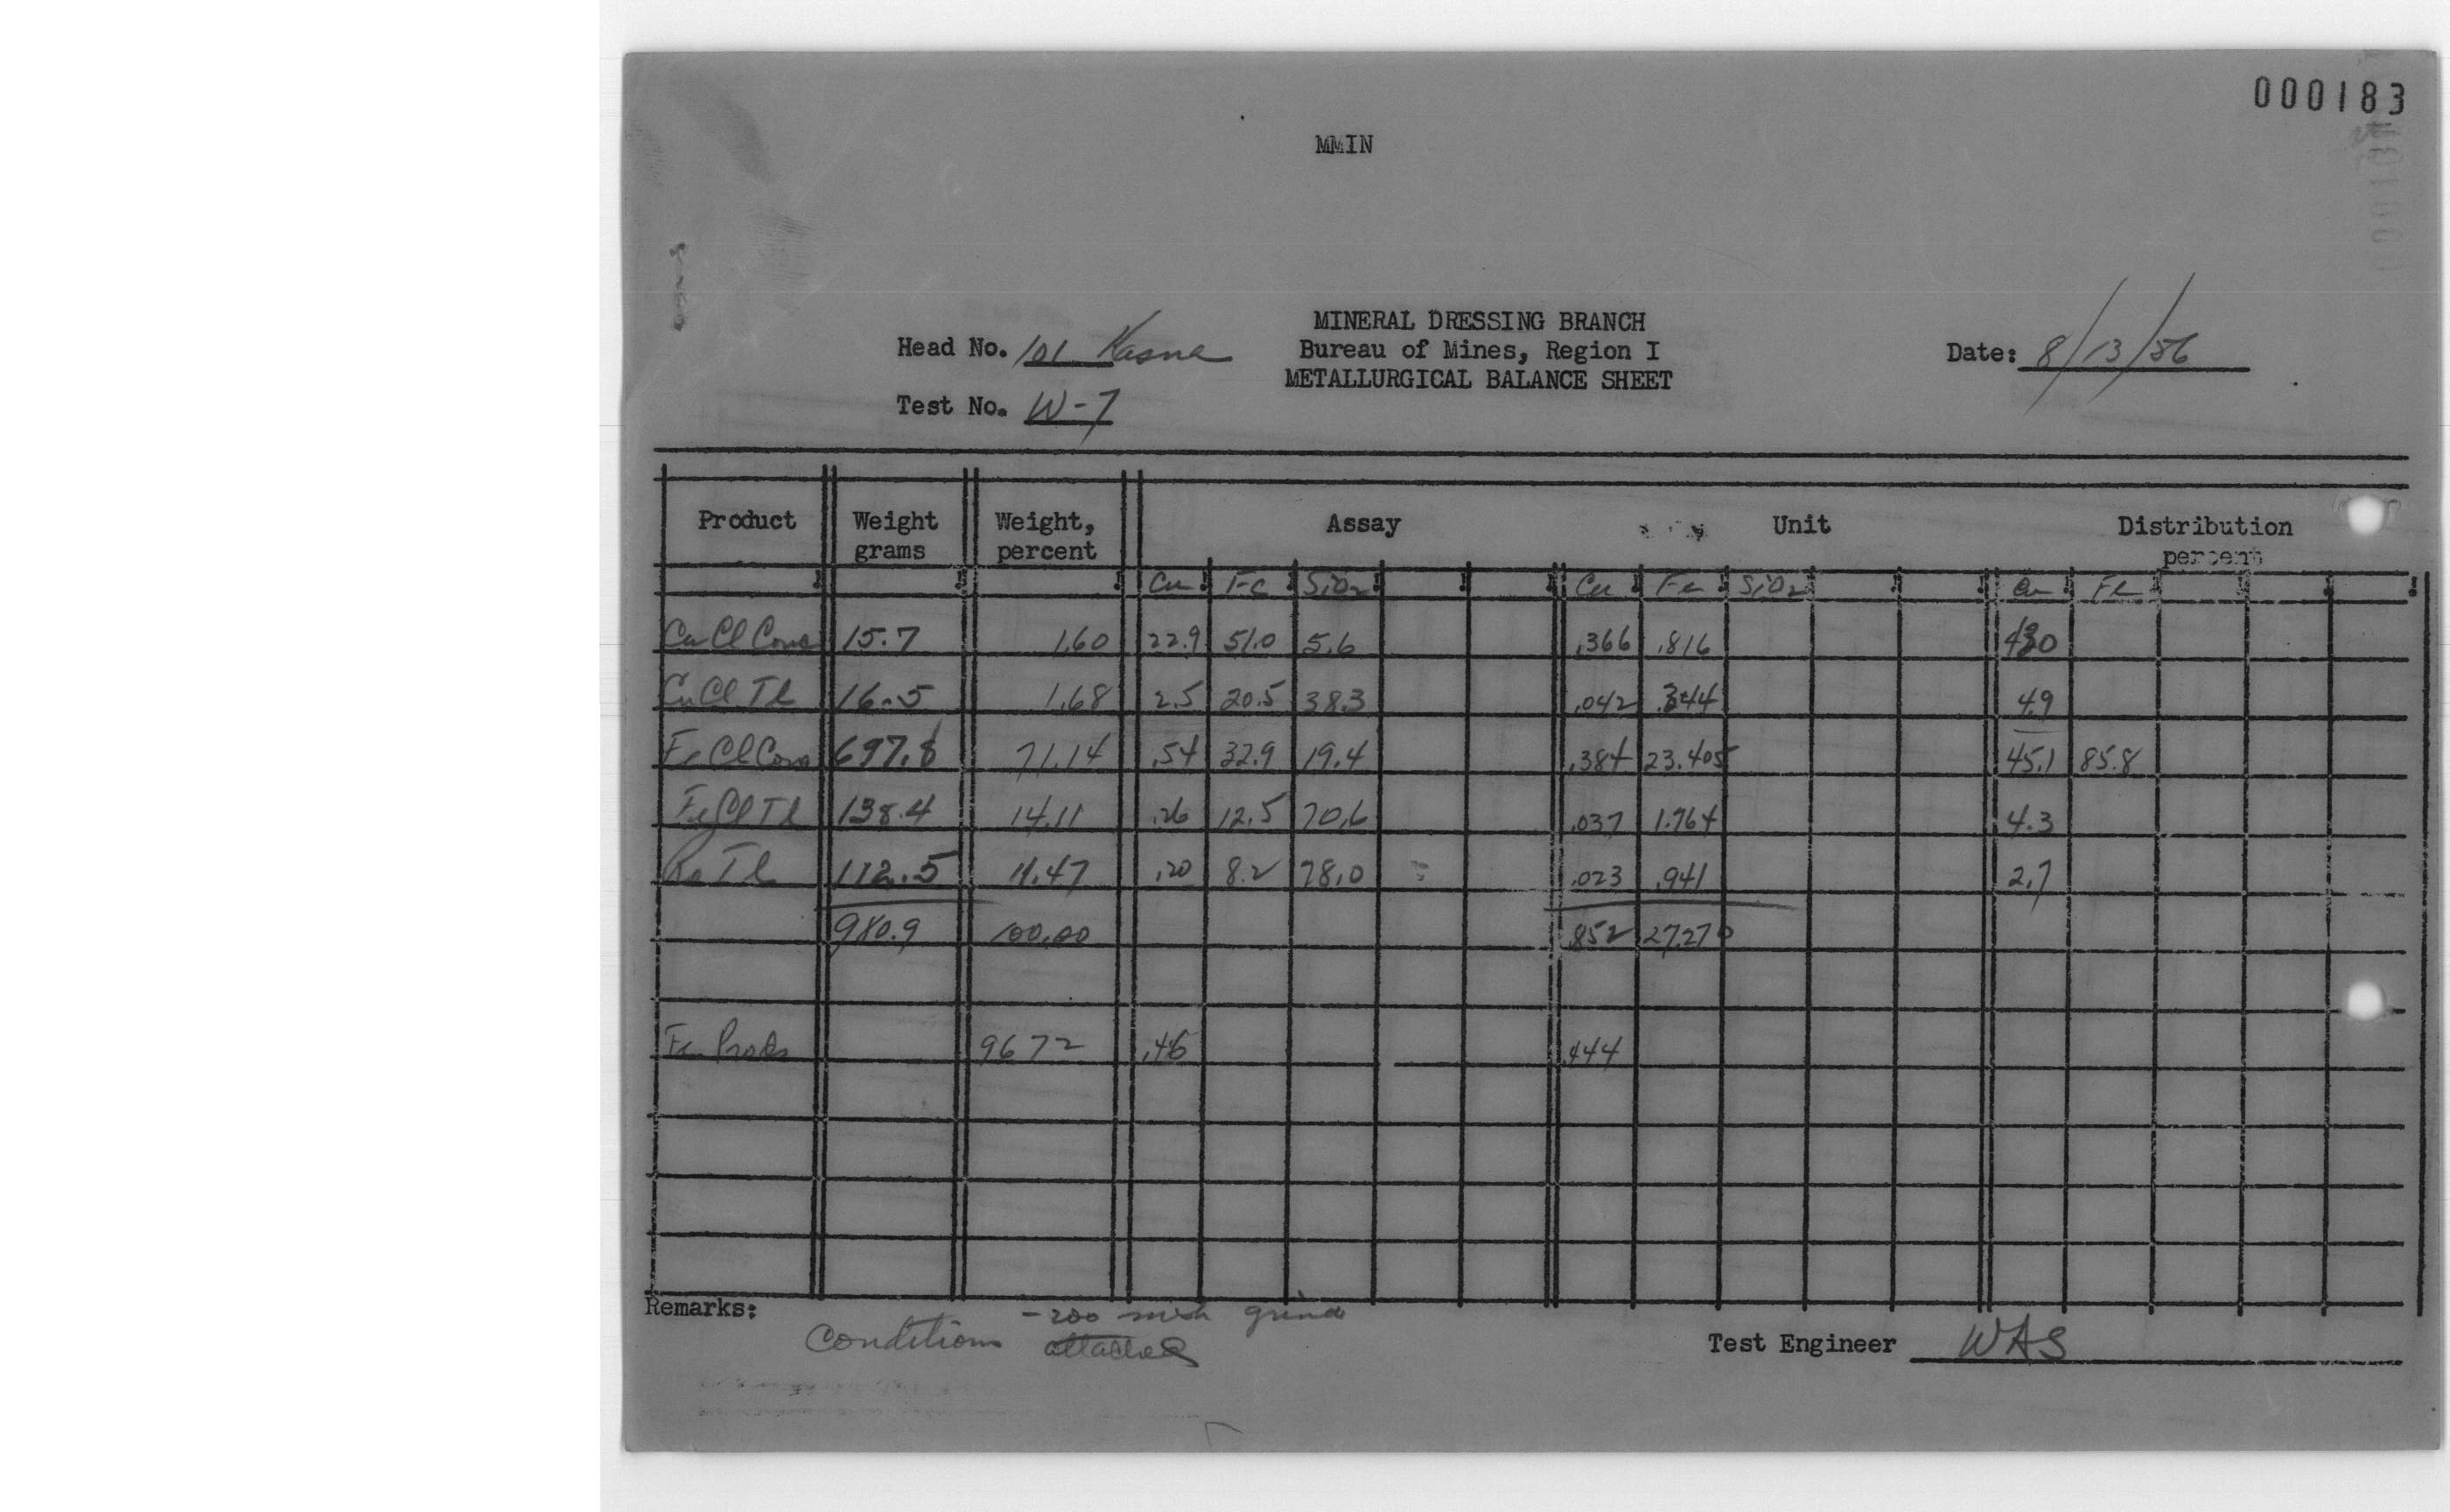 000183
MMIN
MINERAL DRESSING BRANCH
Head No. 101 Kasna Bureau of Mines, Region I Date: 8/13/56
METALLURGICAL BALANCE SHEET
Test No. W-7
Product Weight grams Weight, percent Assay Unit Distribution percent
Cu Fe SiO2 Cu Fe SiO2 Cu Fe
Cu Cl Conc 15.7 1.60 22.9 51.0 5.6 .366 .816
Cu Cl Tl 16.5 1.68 2.5 20.5 38.3 .042 .344 4.9
Fe Cl Conc 697.8 71.14 .54 32.9 19.4 .384 23.405 45.1 85.8
Fe Cl Tl 138.4 14.11 .26 12.5 70.6 .037 1.764 4.3
Ro Tl 112.5 11.47 .20 8.2 78.0 .023 .941 2.7
980.9 100.00 .852 27.270
Fe Prods 96 72 .46 .444
Remarks: -200 mesh grind
Conditions attached
Test Engineer WAS